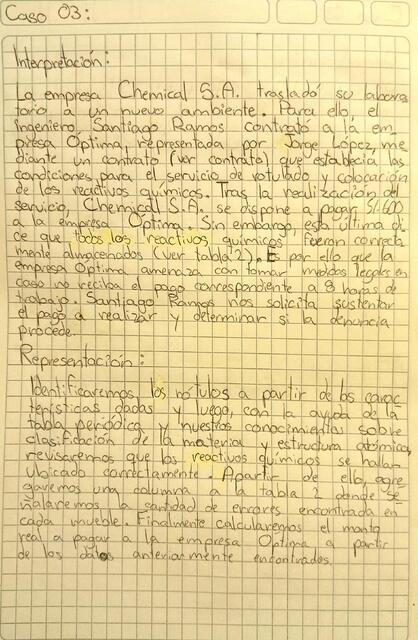 Caso 03:
Interpretación:
La empresa Chemical S.A. trasladó su labora
torio a un nuevo ambiente. Para ello el
ingeniero Santiago Ramos contrató a la em
presa Optima, representada por Jorge López, me
diante un contrato (ver contrato) que establecía las
condiciones para el servicio de rotulado y colocación
de los reactivos químicos. Tras la realización del
servicio, Chemical S.A. se dispone a pagar S/.600
a la empresa Optima. Sin embargo, esta última di
ce que todos los reactivos químicos fueron correcta
mente almacenados (ver tabla 2). Es por ello que la
empresa Optima amenaza con tomar medidas legales en
caso no reciba el pago correspondiente a 8 horas de
trabajo. Santiago Ramos nos solicita sustentar
el pago a realizar y determinar si la denuncia
procede.
Representación:
Identificaremos los rótulos a partir de las carac
terísticas dadas y luego, con la ayuda de la
tabla periódica y nuestros conocimientos sobre
clasificación de la materia y estructura atómica,
revisaremos que los reactivos químicos se hallan
ubicado correctamente. Apartir de ello, agre
garemos una columna a la tabla 2 donde se
ñalaremos la cantidad de errores encontrada en
cada mueble. Finalmente calcularemos el monto
real a pagar a la empresa Optima a partir
de los datos anteriormente encontrados.